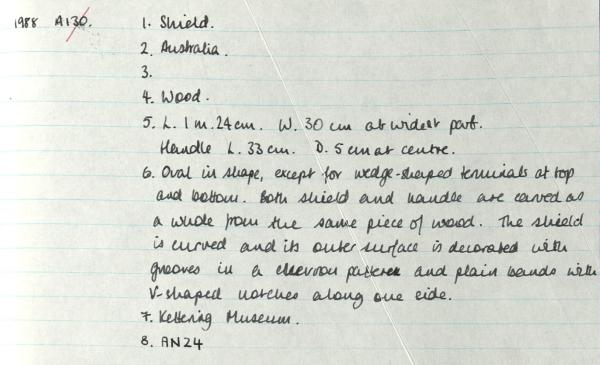 1988 A130. 1. Shield.
2. Australia.
3.
4. Wood.
5. L. 1m.24cm. W. 30 cm at widest part.
Handle L. 33cm. D. 5 cm at centre.
6. Oval in shape, except for wedge-shaped terminals at top
and bottom. Both shield and handle are carved as
a whole from the same piece of wood. The shield
is curved and its outer surface is decorated with
grooves in a chevron pattern and plain bands with
V-shaped notches along one side.
7. Kettering Museum.
8. AN24